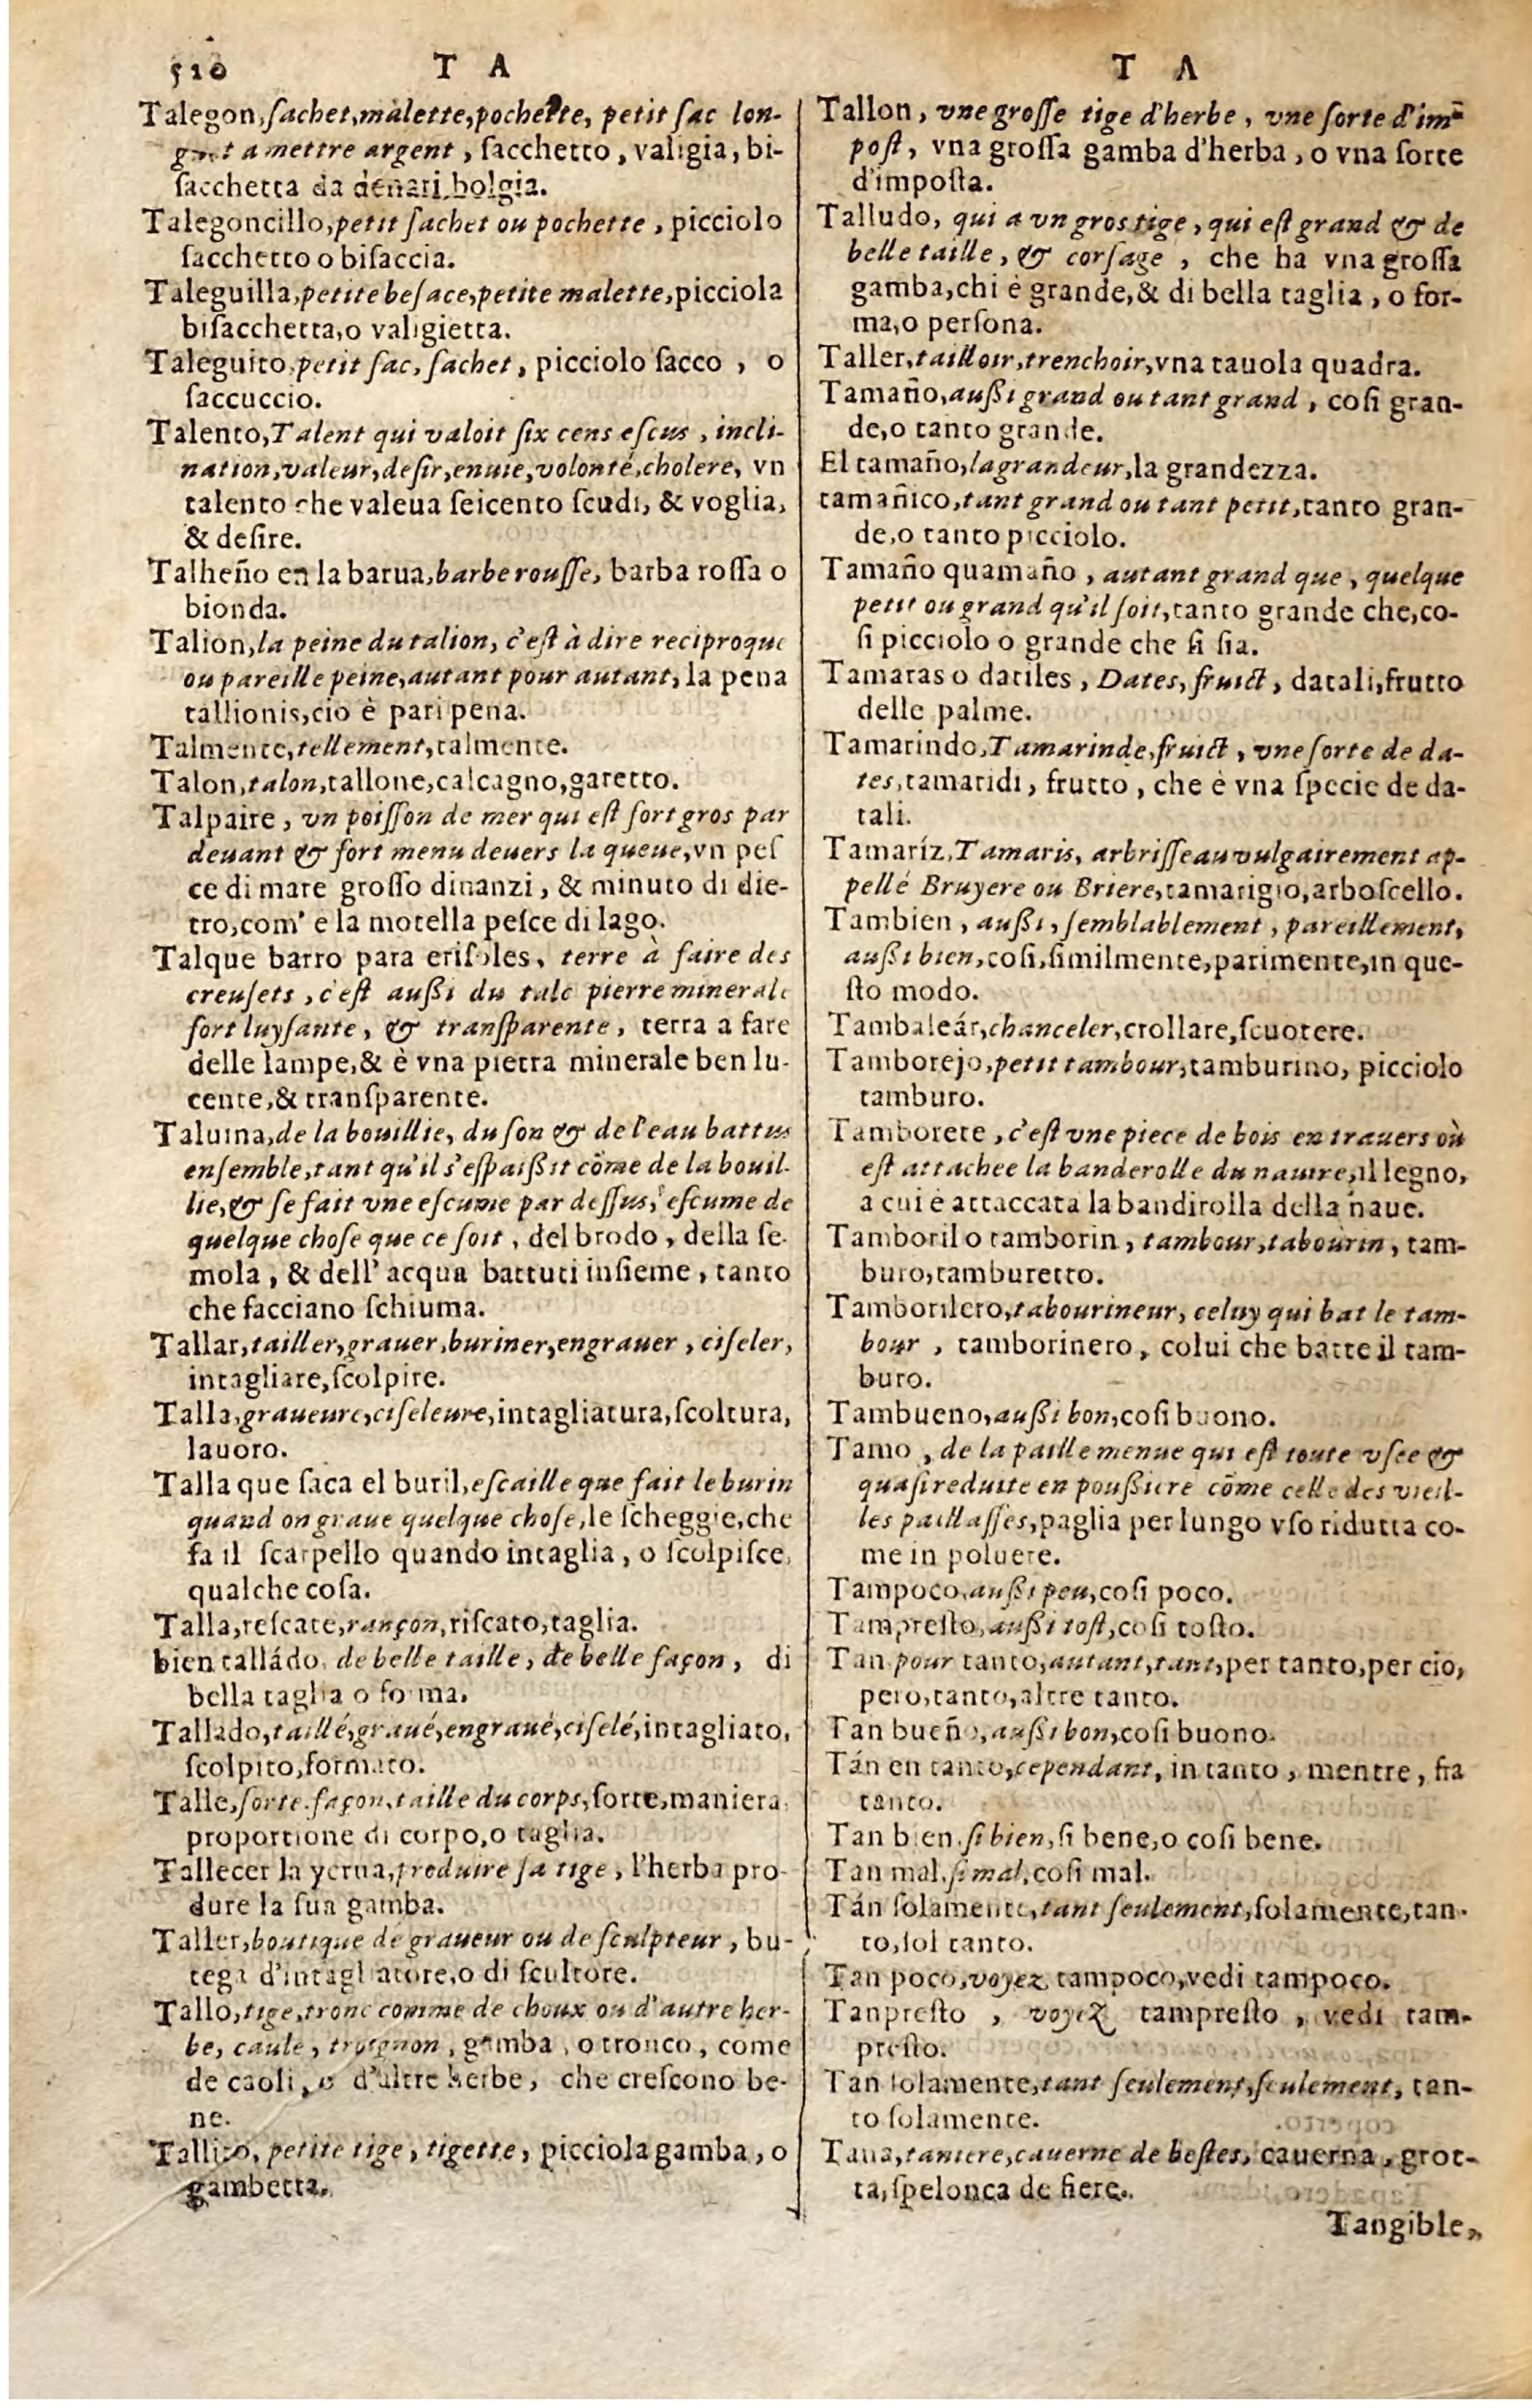 510 T A
Talegon, ſachet, malette, pochette, petit ſac lon-
guet a mettre argent, ſacchetto, valigia, bi-
ſacchetta da denari, bolgia.
Talegoncillo, petit ſachet ou pochette, picciolo
ſacchetto o biſaccia.
Taleguilla, petite beſace, petite malette, picciola
biſacchetta, o valigietta.
Taleguito, petit ſac, ſachet, picciolo ſacco, o
ſaccuccio.
Talento, Talent qui valoit ſix cens eſcus, incli-
nation, valeur, deſir, enuie, volonté, cholere, vn
talento che valeua ſeicento ſcudi, & voglia,
& deſire.
Talheño en la barua, barbe rouſſe, barba roſſa o
bionda.
Talion, la peine du talion, c'eſt à dire reciproque
ou pareille peine, autant pour autant, la pena
tallionis, cio è pari pena.
Talmente, tellement, talmente.
Talon, talon, tallone, calcagno, garetto.
Talpaire, vn poiſſon de mer qui eſt fort gros par
deuant & fort menu deuers la queue, vn peſ
ce di mare groſſo dinanzi, & minuto di die-
tro, com' e la motella peſce di lago.
Talque barro para eriſoles, terre à faire des
creuſets, c'eſt außi du talc pierre minerale
fort luyſante, & tranſparente, terra a fare
delle lampe, & è vna pietra minerale ben lu-
cente, & tranſparente.
Taluina, de la bouillie, du ſon & de l'eau battus
enſemble, tant qu'il s'eſpaißit cõme de la bouil-
lie, & ſe fait vne eſcume par deſſus, eſcume de
quelque choſe que ce ſoit, del brodo, della ſe-
mola, & dell' acqua battuti inſieme, tanto
che facciano ſchiuma.
Tallar, tailler, grauer, buriner, engrauer, ciſeler,
intagliare, ſcolpire.
Talla, graueure, ciſeleure, intagliatura, ſcoltura,
lauoro.
Talla que ſaca el buril, eſcaille que fait le burin
quand on graue quelque choſe, le ſcheggie, che
fa il ſcarpello quando intaglia, o ſcolpiſce,
qualche coſa.
Talla, reſcate, rançon, riſcato, taglia.
bien talládo, de belle taille, de belle façon, di
bella taglia o forma.
Tallado, taillé, graué, engraué, ciſelé, intagliato,
ſcolpito, formato.
Talle, ſorte, façon, taille du corps, ſorte, maniera,
proportione di corpo, o taglia.
Tallecer la yerua, produire ſa tige, l'herba pro-
dure la ſua gamba.
Taller, boutique de graueur ou de ſculpteur, bu-
tega d'intagliatore, o di ſcultore.
Tallo, tige, tronc comme de choux ou d'autre her-
be, caule, troignon, gamba, o tronco, come
de caoli, o d'altre herbe, che creſcono be-
ne.
Tallito, petite tige, tigette, picciola gamba, o
gambetta.
T A
Tallon, vne groſſe tige d'herbe, vne ſorte d'im-
poſt, vna groſſa gamba d'herba, o vna ſorte
d'impoſta.
Talludo, qui a vn gros tige, qui eſt grand & de
belle taille, & corſage, che ha vna groſſa
gamba, chi è grande, & di bella taglia, o for-
ma, o perſona.
Taller, tailloir, trenchoir, vna tauola quadra.
Tamaño, außi grand ou tant grand, coſi gran-
de, o tanto grande.
El tamaño, la grandeur, la grandezza.
tamañico, tant grand ou tant petit, tanto gran-
de, o tanto picciolo.
Tamaño quamaño, autant grand que, quelque
petit ou grand qu'il ſoit, tanto grande che, co-
ſi picciolo o grande che ſi ſia.
Tamaras o datiles, Dates, fruict, datali, frutto
delle palme.
Tamarindo, Tamarinde, fruict, vne ſorte de da-
tes, tamaridi, frutto, che è vna ſpecie de da-
tali.
Tamaríz, Tamaris, arbriſſeau vulgairement ap-
pellé Bruyere ou Briere, tamarigio, arboſcello.
Tambien, außi, ſemblablement, pareillement,
außi bien, coſi, ſimilmente, parimente, in que-
ſto modo.
Tambaleár, chanceler, crollare, ſcuotere.
Tamborejo, petit tambour, tamburino, picciolo
tamburo.
Tamborete, c'eſt vne piece de bois en trauers où
eſt attachee la banderolle du nauire, il legno,
a cui è attaccata la bandirolla della naue.
Tamboril o tamborin, tambour, tabourin, tam-
buro, tamburetto.
Tamborilero, tabourineur, celuy qui bat le tam-
bour, tamborinero, colui che batte il tam-
buro.
Tambueno, außi bon, coſi buono.
Tamo, de la paille menue qui eſt toute vſee &
quaſi reduite en pouſsiere cõme celle des vieil-
les paillaſſes, paglia per lungo vſo ridutta co-
me in poluere.
Tampoco, außi peu, coſi poco.
Tampreſto, außi toſt, coſi toſto.
Tan pour tanto, autant, tant, per tanto, per cio,
pero, tanto, altre tanto.
Tan bueño, außi bon, coſi buono.
Tán en tanto, cependant, in tanto, mentre, fra
tanto.
Tan bien, ſi bien, ſi bene, o coſi bene.
Tan mal, ſi mal, coſi mal.
Tán ſolamente, tant ſeulement, ſolamente, tan-
to, ſol tanto.
Tan poco, voyez tampoco, vedi tampoco.
Tanpreſto, voyez tampreſto, vedi tam-
preſto.
Tan ſolamente, tant ſeulement, ſeulement, tan-
to ſolamente.
Tana, taniere, cauerne de beſtes, cauerna, grot-
ta, ſpelonca de fiere.
Tangible,